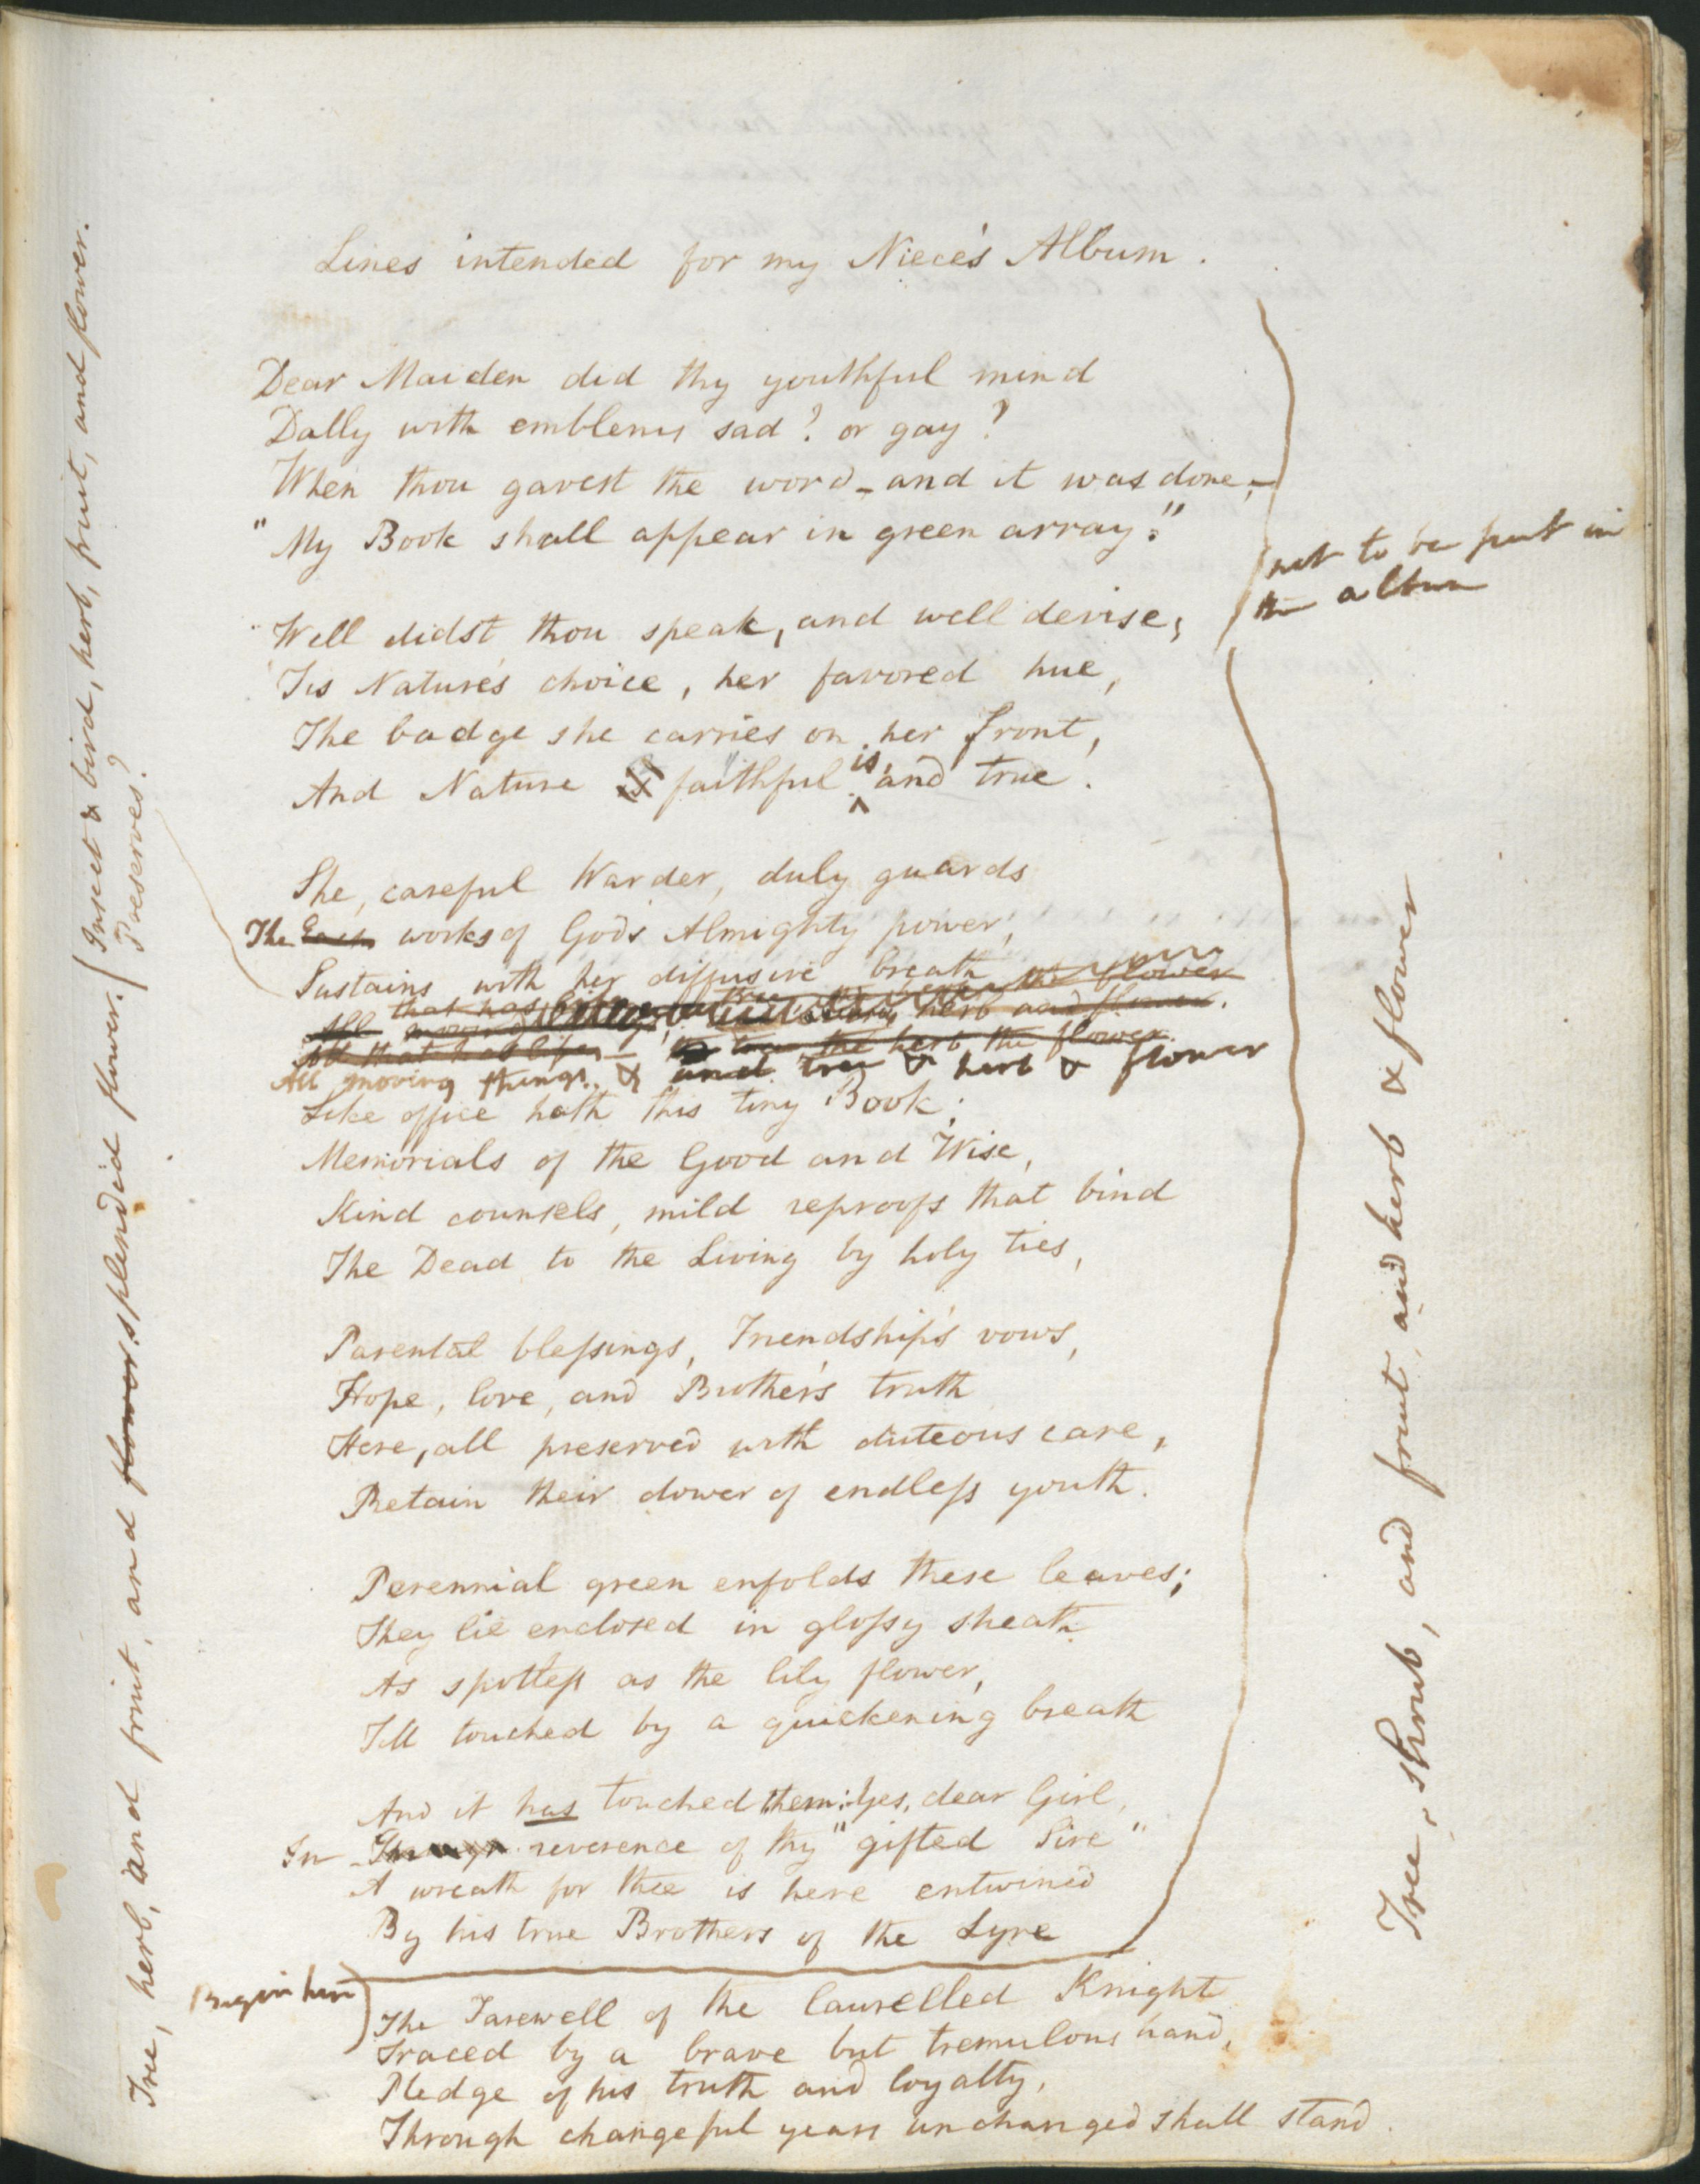 Lines intended for my Niece's Album.
Dear Maiden did thy youthful mind
Dally with emblems sad? or gay?
When thou gavest the word - and it was done, -
"My Book shall appear in green array."
Well didst thou speak, and well devise;
'Tis Nature's choice, her favored hue,
The badge she carries on her front,
And Nature is faithful is, and true.
She, careful Warder, duly guards
The Each works of God's Almighty power,
Sustains with her diffusive breath the flower
All that has herb and flower.
All that has life, — the tree the herb the flower
All moving things & and tree & herb & flower
Like office hath this tiny Book;
Memorials of the Good and Wise,
Kind counsels, mild reproofs that bind
The Dead to the Living by holy ties,
Parental blessings, Friendship's vows,
Hope, love, and Brother's truth
Here, all preserved with duteous care,
Retain their dower of endless youth.
Perennial green enfolds these leaves;
They lie enclosed in glossy sheath
As spotless as the lily flower,
Till touched by a quickening breath
And it has touched them: Yes, dear Girl,
In Through reverence of thy "gifted Sire"
A wreath for thee is here entwined
By his true Brothers of the Lyre
Begin here
The Farewell of the laurelled Knight
Traced by a brave but tremulous hand,
Pledge of his truth and loyalty,
Through changeful years unchanged shall stand.
not to be put in
the album
Tree, herb, and fruit, and flower. splendid flower.
Insect & bird, herb, fruit, and flower.
Preserves?
Tree, shrub, and fruit, and herb & flower